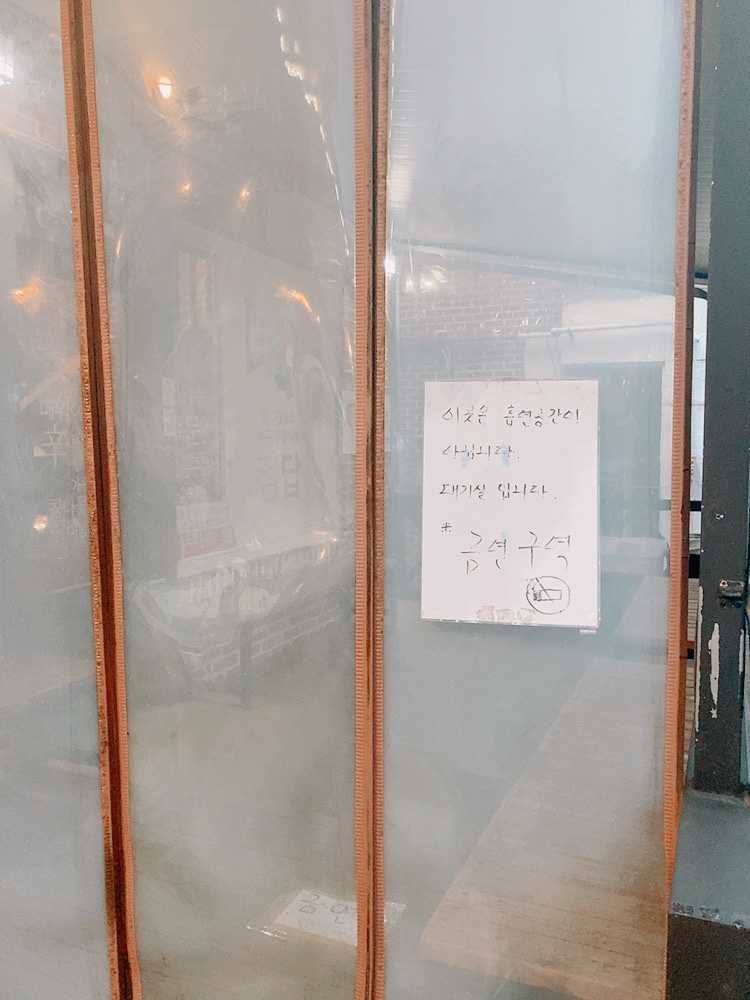 이곳은 흡연공간이
아닙니다.
대기실 입니다.
* 금연 구역
금연